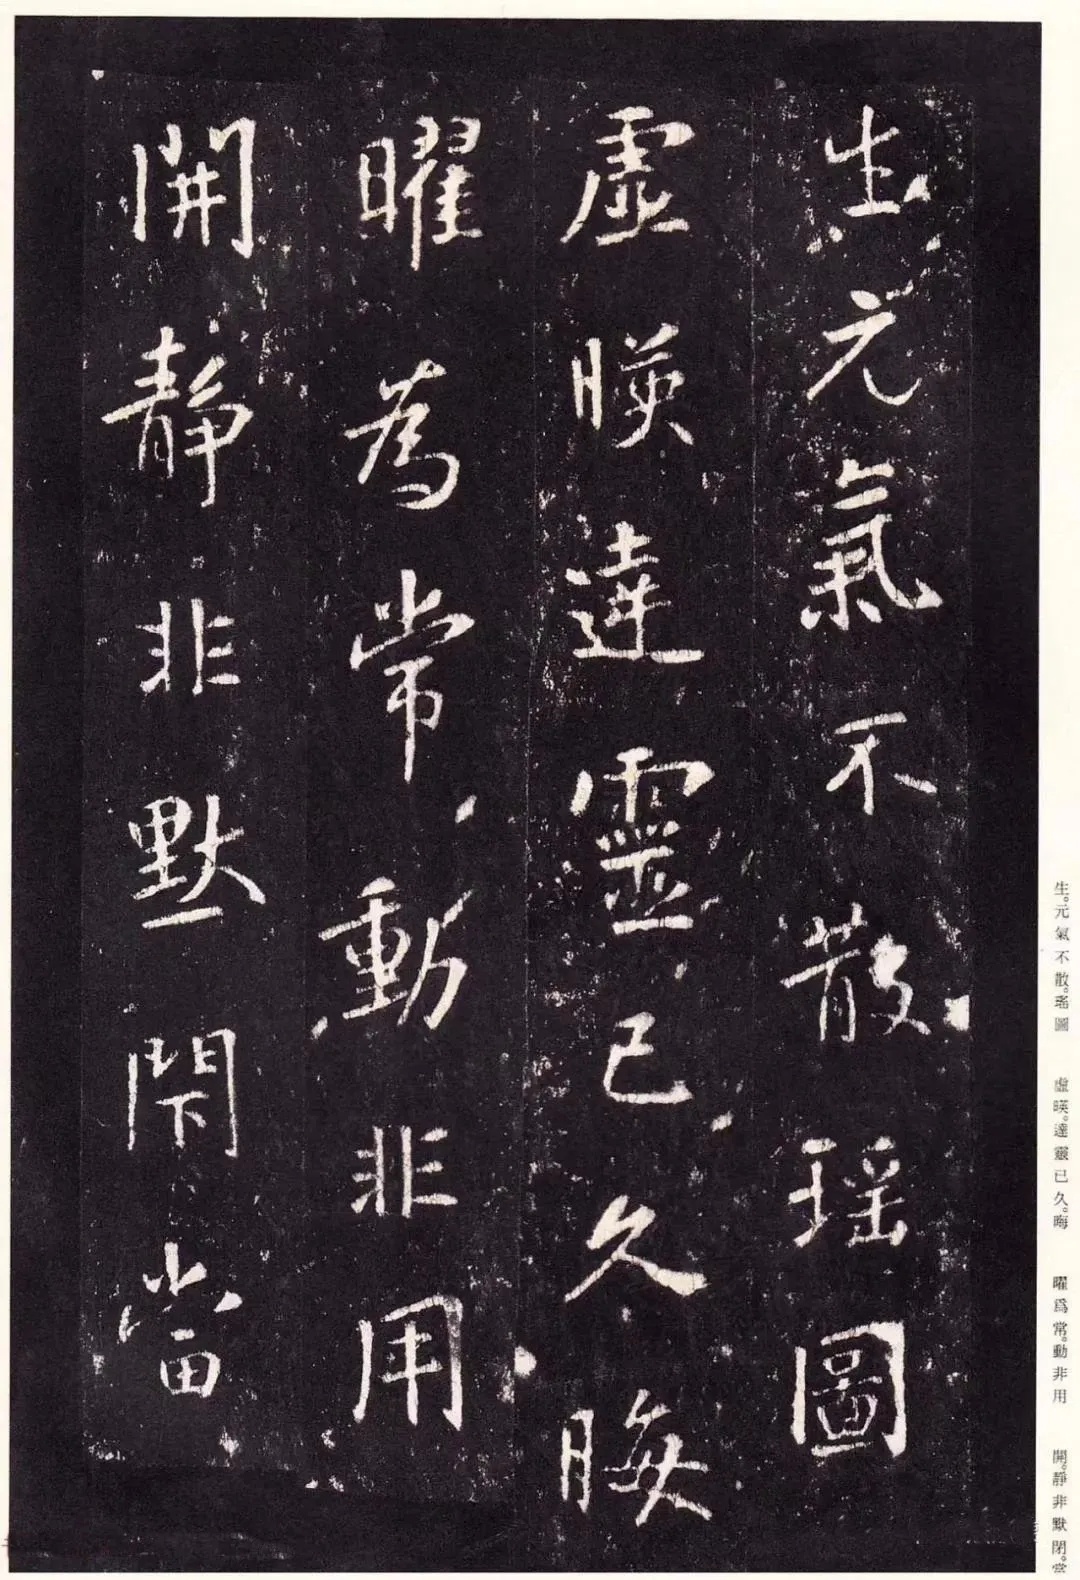 生元氣不散瑶圖
虛暎達靈已久晦
曜為常動非用
開靜非默閇當
生。元氣不散。瑤圖 虛暎。達靈已久。晦 曜爲常。動非用 開。靜非默閉。當